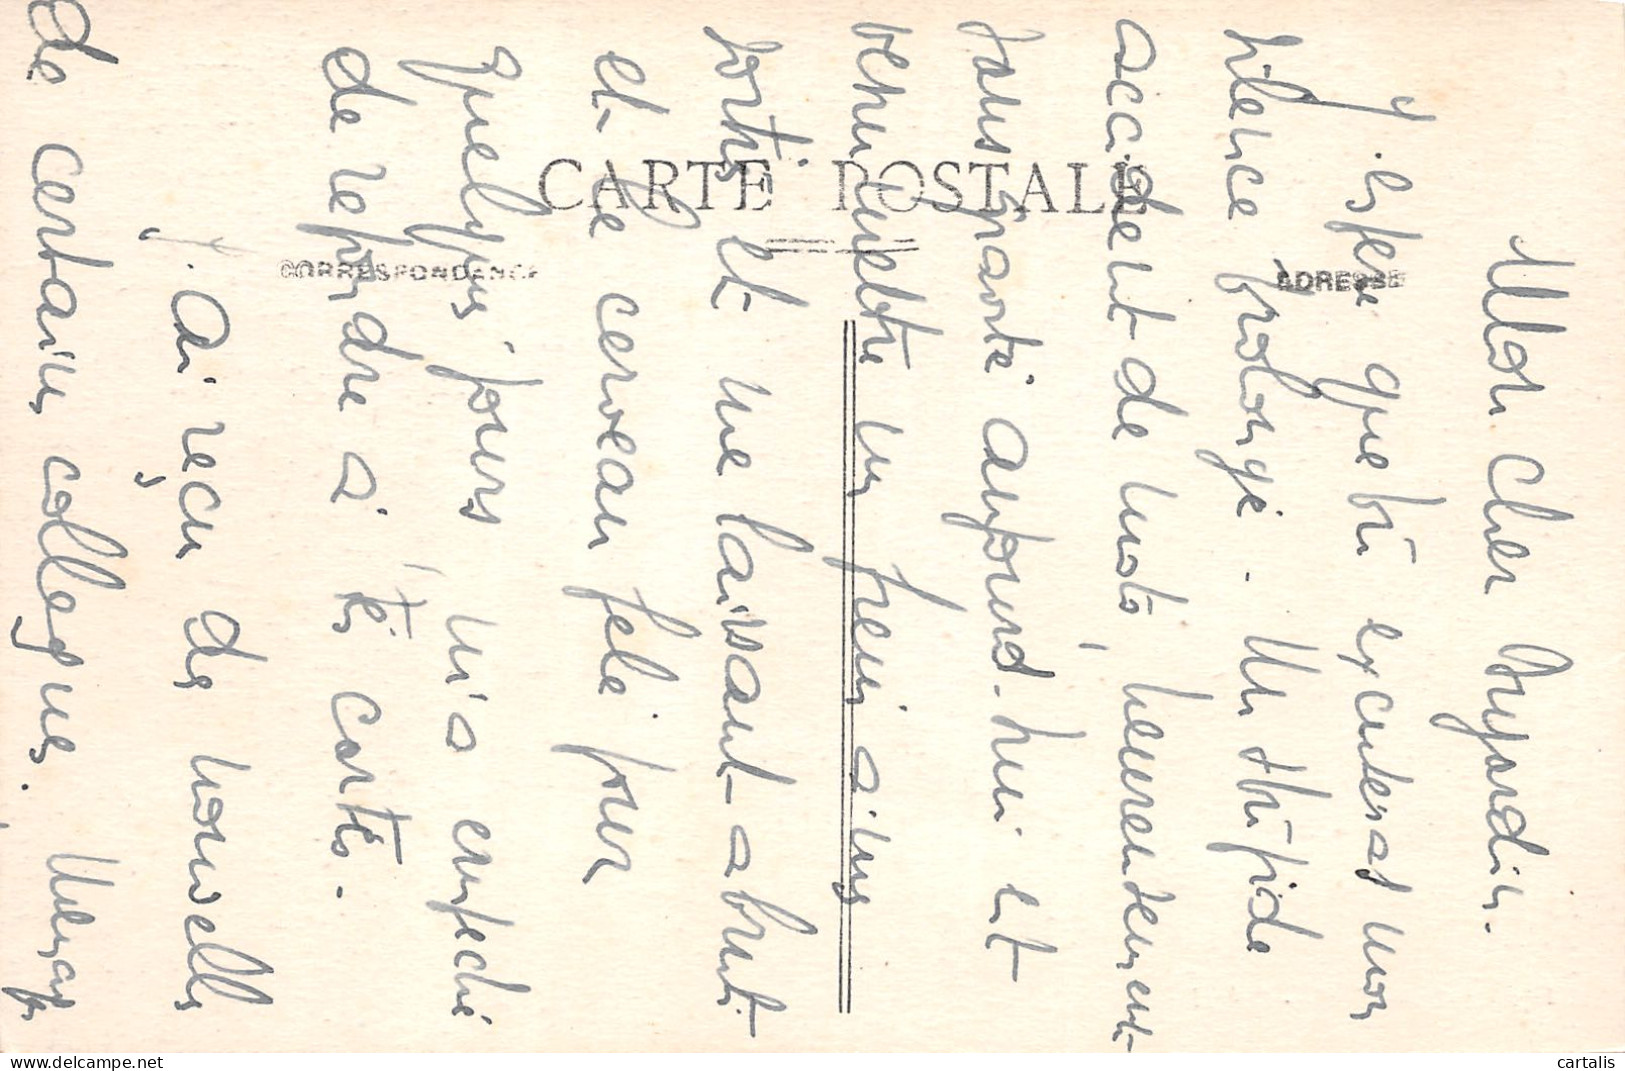 CARTE POSTALE
CORRESPONDANCE
ADRESSE
Mon cher
J'espère que tu excuseras mon
silence prolongé. Un stupide
accident de moto, heureusement
sans gravité aujourd'hui est
venu mettre un frein à mes
sorties et me laissant abruti
et le cerveau fêlé pour
quelques jours m'a empêché
de répondre à tes cartes.
J'ai reçu des nouvelles
de certains collègues.
cartalis